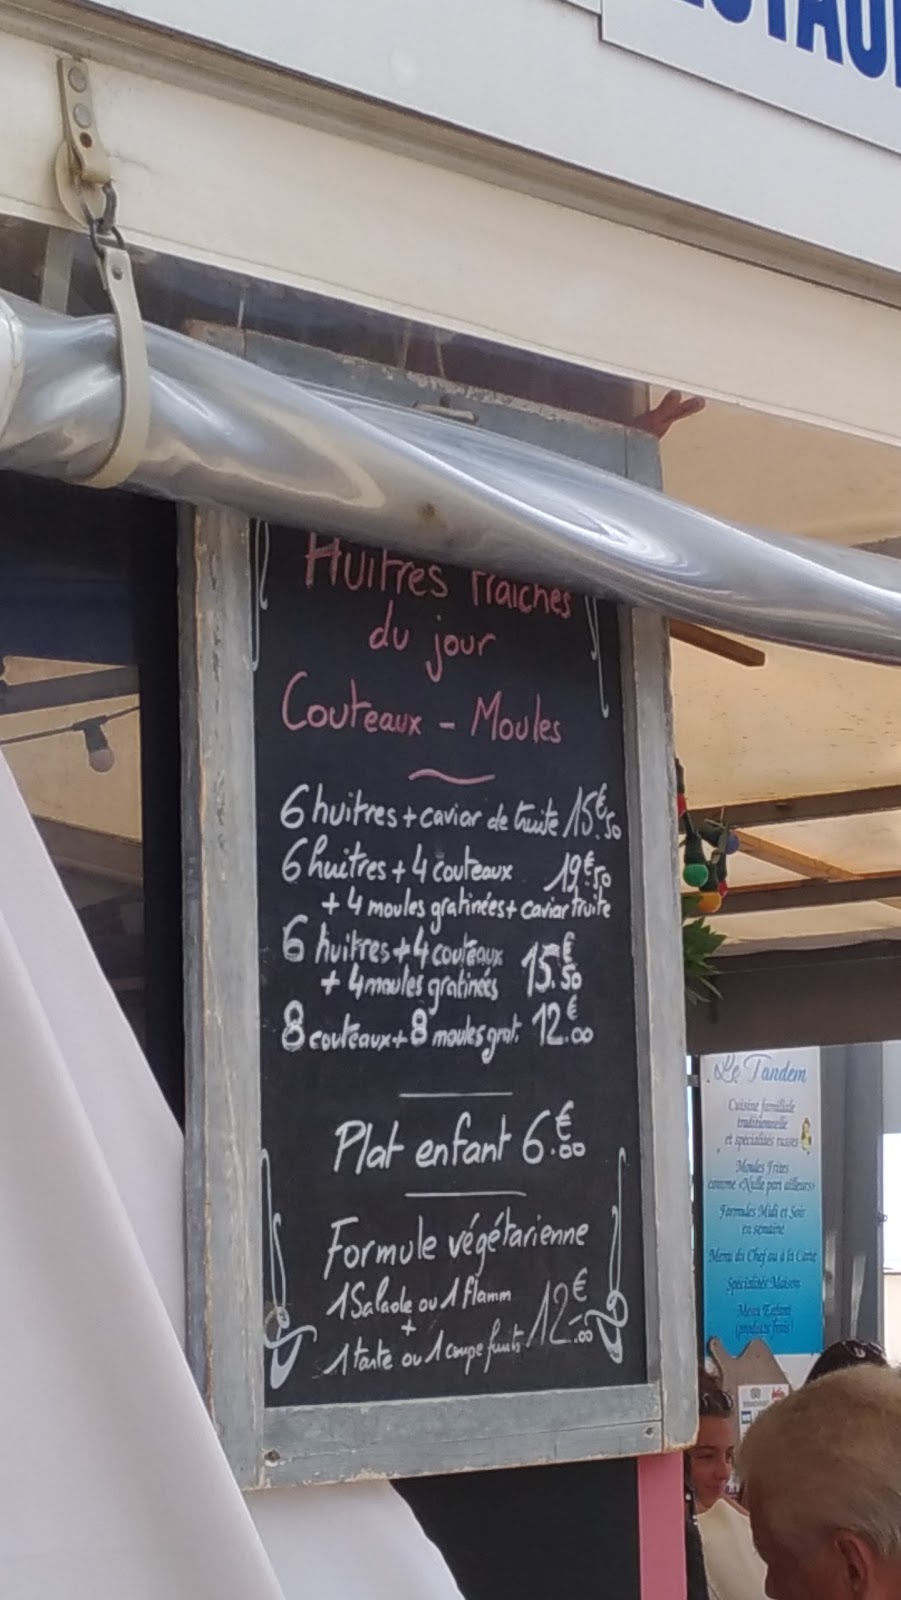 Huitres fraiches
du jour
Couteaux - Moules
6 huitres + caviar de truite 15.€50
6 huitres + 4 couteaux 19.€50
+ 4 moules gratinées + caviar truite
6 huitres + 4 couteaux
+ 4 moules gratinées 15.€50
8 couteaux + 8 moules grat. 12.€00
Plat enfant 6.€00
Formule végétarienne
1 Salade ou 1 flamm
+
1 tarte ou 1 coupe fruits 12.€00
Le Tandem
Cuisine familiale
traditionnelle
et spécialités russes
Moules Frites
comme «Nulle part ailleurs»
Formules Midi et Soir
en semaine
Menu du Chef ou à la Carte
Spécialités Maison
Menu Enfant
(produits frais)